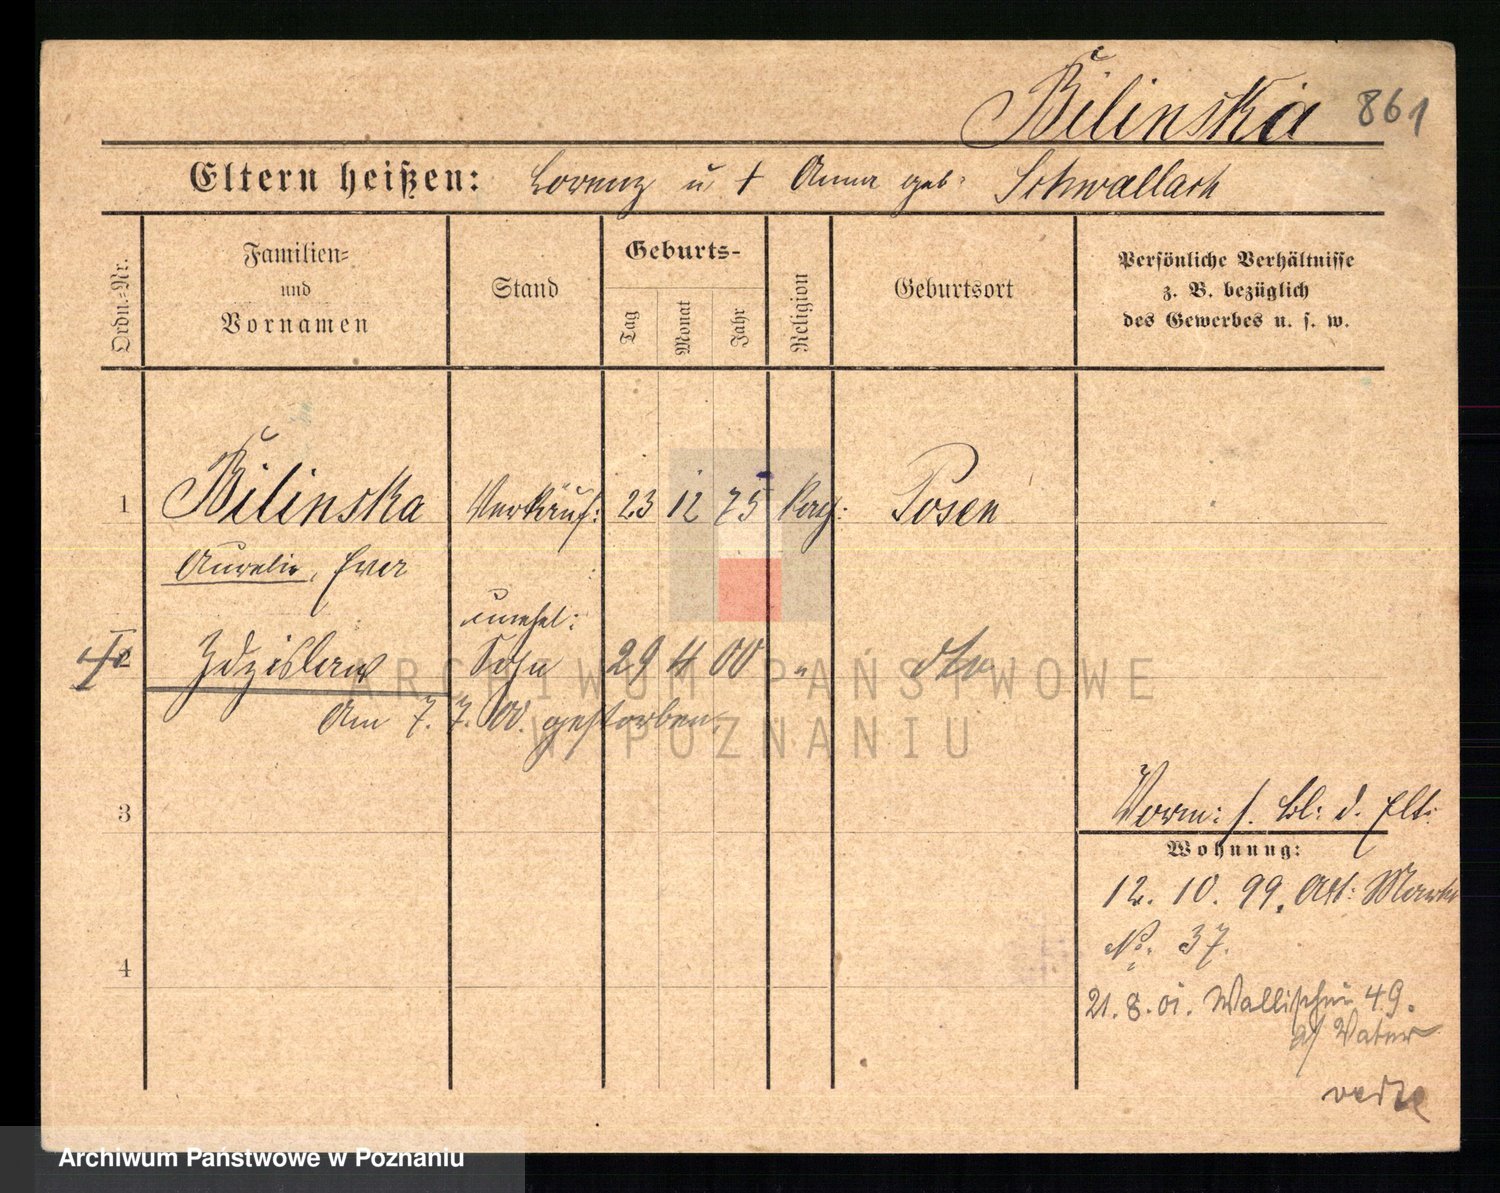 Bilinska 861
Eltern heißen: Lorenz u † Anna geb. Schwallach
Ordn.-Nr.
Familien-
und
Vornamen
Stand
Geburts-
Tag
Monat
Jahr
Religion
Geburtsort
Persönliche Verhältnisse
z. B. bezüglich
des Gewerbes u. s. w.
1 Bilinska Verkäuf: 23 12 75 Posen
Aurelie, Eva
unehel:
2 Zdzislaw Sohn 29 4 00 " dto
Am 7. 7. 00. gestorben.
3
4
Vorm: s. Bl: d. Elt:
Wohnung:
12. 10. 99. Alt: Markt
No. 37.
21. 8. 01. Wallischei 49.
b/ Vater
ARCHIWUM PAŃSTWOWE
W POZNANIU
Archiwum Państwowe w Poznaniu